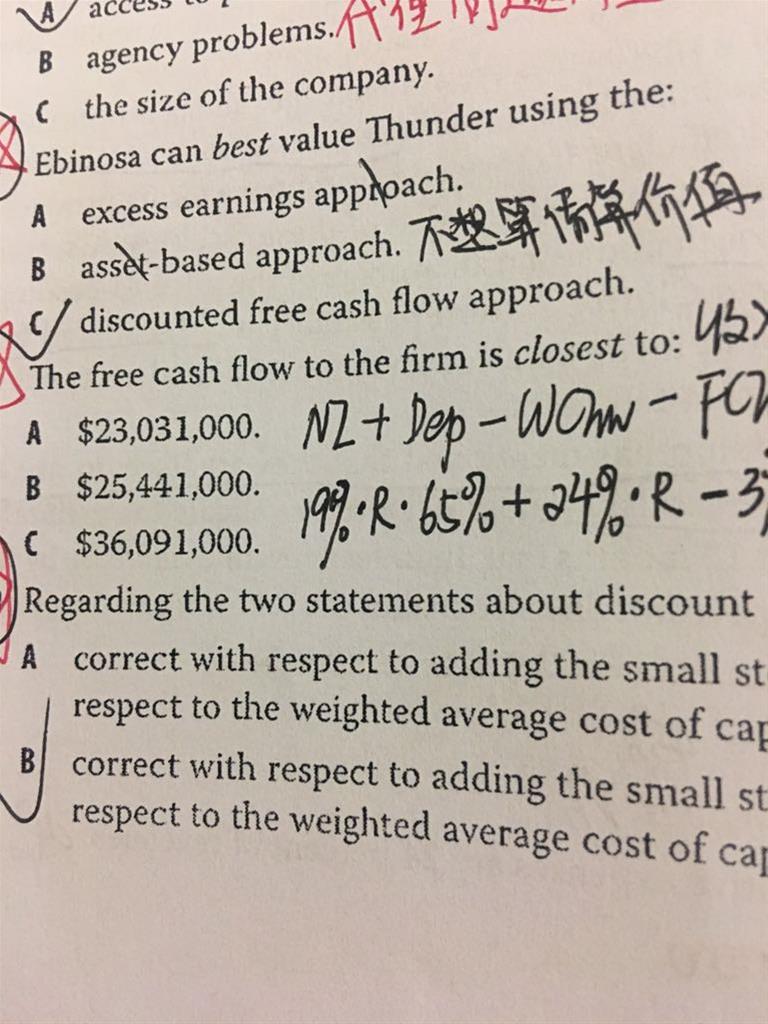 A access to
B agency problems. 代理问题
C the size of the company.
Ebinosa can best value Thunder using the:
A excess earnings approach.
B asset-based approach. 不想算债算价值
C discounted free cash flow approach.
The free cash flow to the firm is closest to:
A $23,031,000. NI + Dep - WCInv - FCI
B $25,441,000. 19%·R·65% + 24%·R - 3
C $36,091,000.
Regarding the two statements about discount
A correct with respect to adding the small st
respect to the weighted average cost of cap
B correct with respect to adding the small st
respect to the weighted average cost of cap